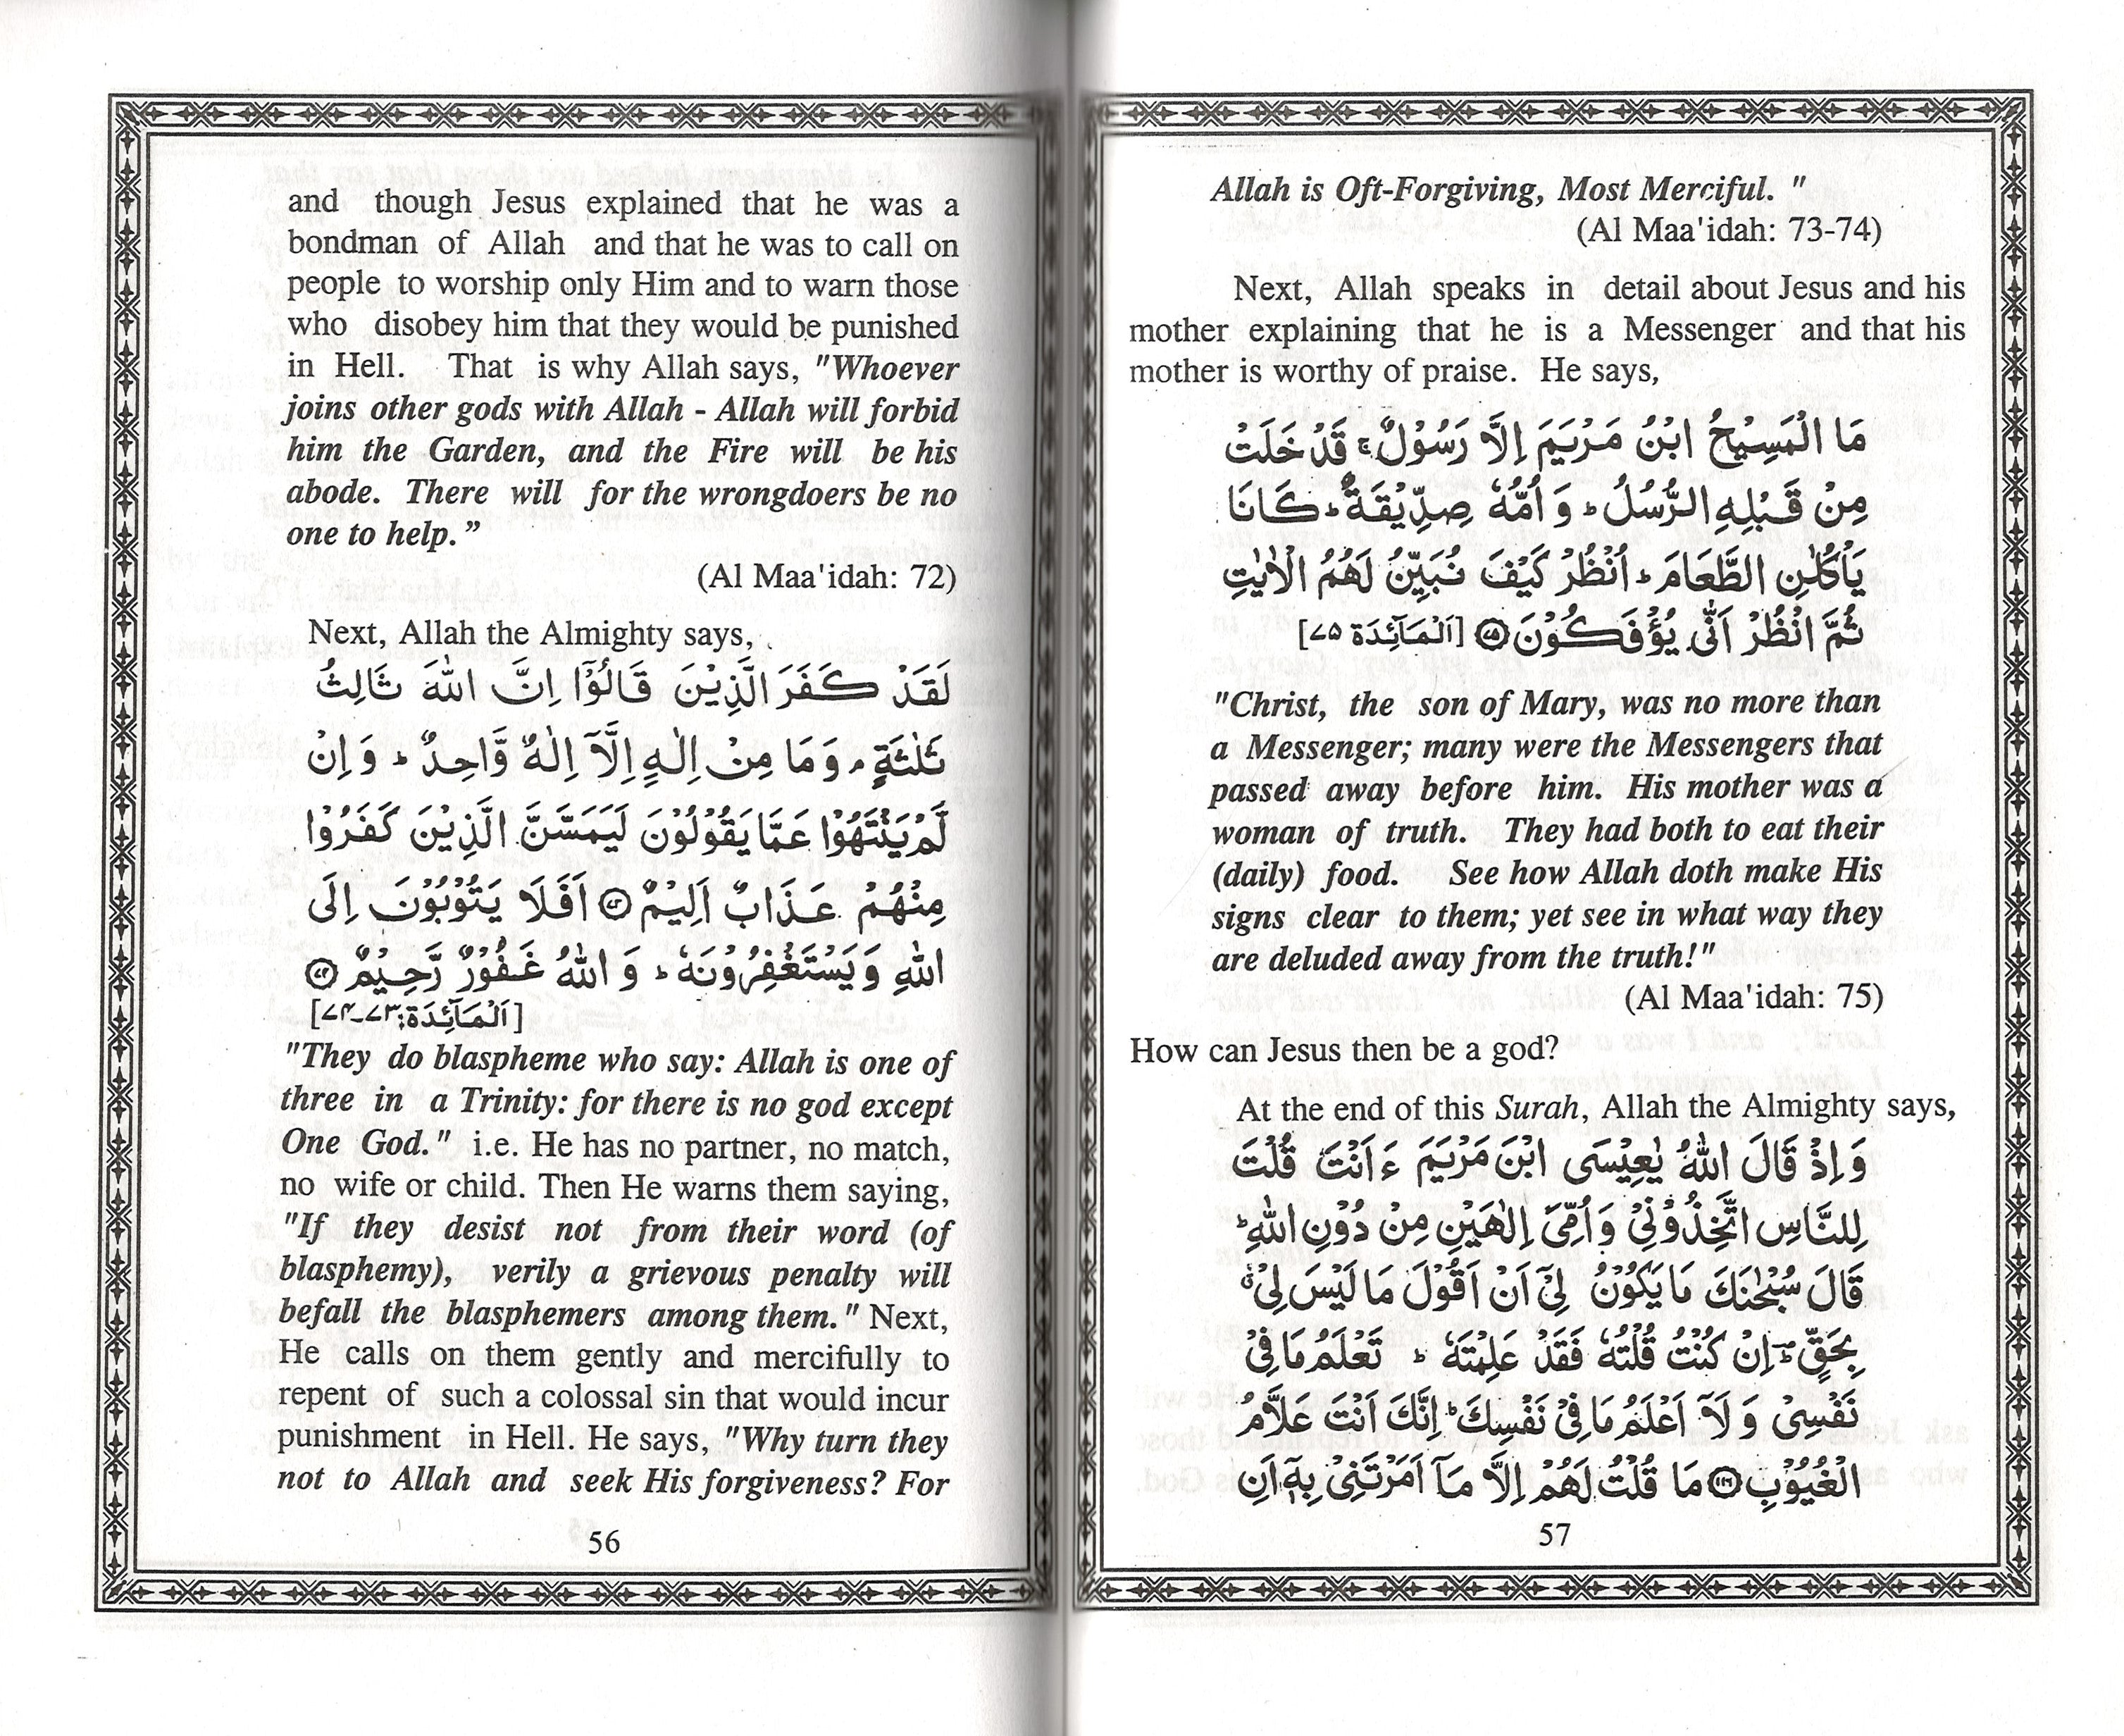 and though Jesus explained that he was a
bondman of Allah and that he was to call on
people to worship only Him and to warn those
who disobey him that they would be punished
in Hell. That is why Allah says, "Whoever
joins other gods with Allah - Allah will forbid
him the Garden, and the Fire will be his
abode. There will for the wrongdoers be no
one to help.”
(Al Maa'idah: 72)
Next, Allah the Almighty says,
لَقَدْ كَفَرَ الَّذِيْنَ قَالُوْٓا اِنَّ اللّٰهَ ثَالِثُ
ثَلٰثَةٍ ۘ وَمَا مِنْ اِلٰهٍ اِلَّآ اِلٰهٌ وَّاحِدٌ ؕ وَاِنْ
لَّمْ يَنْتَهُوْا عَمَّا يَقُوْلُوْنَ لَيَمَسَّنَّ الَّذِيْنَ كَفَرُوْا
مِنْهُمْ عَذَابٌ اَلِيْمٌ ﴿۷۳﴾ اَفَلَا يَتُوْبُوْنَ اِلَى
اللّٰهِ وَيَسْتَغْفِرُوْنَهٗ ؕ وَاللّٰهُ غَفُوْرٌ رَّحِيْمٌ ﴿۷۴﴾
[اَلْمَآئِدَة: ۷۳-۷۴]
"They do blaspheme who say: Allah is one of
three in a Trinity: for there is no god except
One God." i.e. He has no partner, no match,
no wife or child. Then He warns them saying,
"If they desist not from their word (of
blasphemy), verily a grievous penalty will
befall the blasphemers among them." Next,
He calls on them gently and mercifully to
repent of such a colossal sin that would incur
punishment in Hell. He says, "Why turn they
not to Allah and seek His forgiveness? For
56
Allah is Oft-Forgiving, Most Merciful. "
(Al Maa'idah: 73-74)
Next, Allah speaks in detail about Jesus and his
mother explaining that he is a Messenger and that his
mother is worthy of praise. He says,
مَا الْمَسِيْحُ ابْنُ مَرْيَمَ اِلَّا رَسُوْلٌ ۚ قَدْ خَلَتْ
مِنْ قَبْلِهِ الرُّسُلُ ؕ وَاُمُّهٗ صِدِّيْقَةٌ ؕ كَانَا
يَاْكُلٰنِ الطَّعَامَ ؕ اُنْظُرْ كَيْفَ نُبَيِّنُ لَهُمُ الْاٰيٰتِ
ثُمَّ انْظُرْ اَنّٰى يُؤْفَكُوْنَ ﴿۷۵﴾ [اَلْمَآئِدَة ۷۵]
"Christ, the son of Mary, was no more than
a Messenger; many were the Messengers that
passed away before him. His mother was a
woman of truth. They had both to eat their
(daily) food. See how Allah doth make His
signs clear to them; yet see in what way they
are deluded away from the truth!"
(Al Maa'idah: 75)
How can Jesus then be a god?
At the end of this Surah, Allah the Almighty says,
وَاِذْ قَالَ اللّٰهُ يٰعِيْسَى ابْنَ مَرْيَمَ ءَاَنْتَ قُلْتَ
لِلنَّاسِ اتَّخِذُوْنِيْ وَاُمِّيَ اِلٰهَيْنِ مِنْ دُوْنِ اللّٰهِ ؕ
قَالَ سُبْحٰنَكَ مَا يَكُوْنُ لِيْٓ اَنْ اَقُوْلَ مَا لَيْسَ لِيْ ۗ
بِحَقٍّ ؕ اِنْ كُنْتُ قُلْتُهٗ فَقَدْ عَلِمْتَهٗ ؕ تَعْلَمُ مَا فِيْ
نَفْسِيْ وَلَآ اَعْلَمُ مَا فِيْ نَفْسِكَ ؕ اِنَّكَ اَنْتَ عَلَّامُ
الْغُيُوْبِ ﴿۱۱۶﴾ مَا قُلْتُ لَهُمْ اِلَّا مَآ اَمَرْتَنِيْ بِهٖٓ اَنِ
57